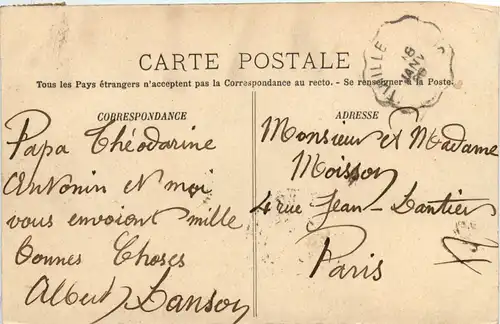 CARTE POSTALE
Tous les Pays étrangers n'acceptent pas la Correspondance au recto. - Se renseigner à la Poste.
CORRESPONDANCE
Papa Théodarine
Antonin et moi
vous envoient mille
bonnes choses
Albert Lanson
ADRESSE
Monsieur et Madame
Moisson
4 rue Jean-Lantier
Paris
16
JANV